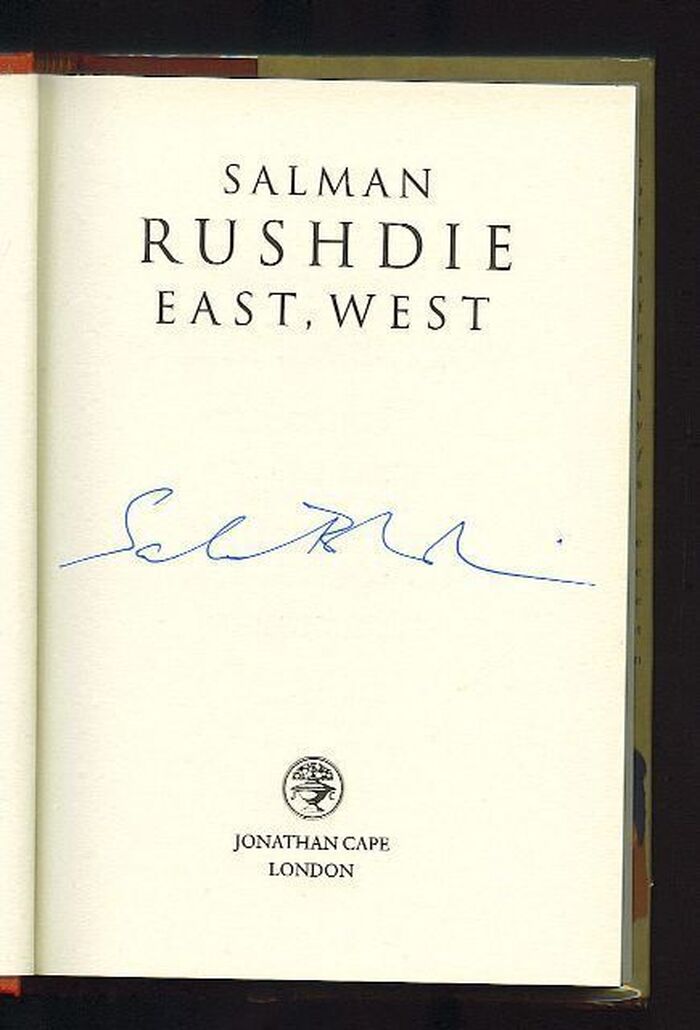 SALMAN
RUSHDIE
EAST, WEST
Salman Rushdie
JONATHAN CAPE
LONDON